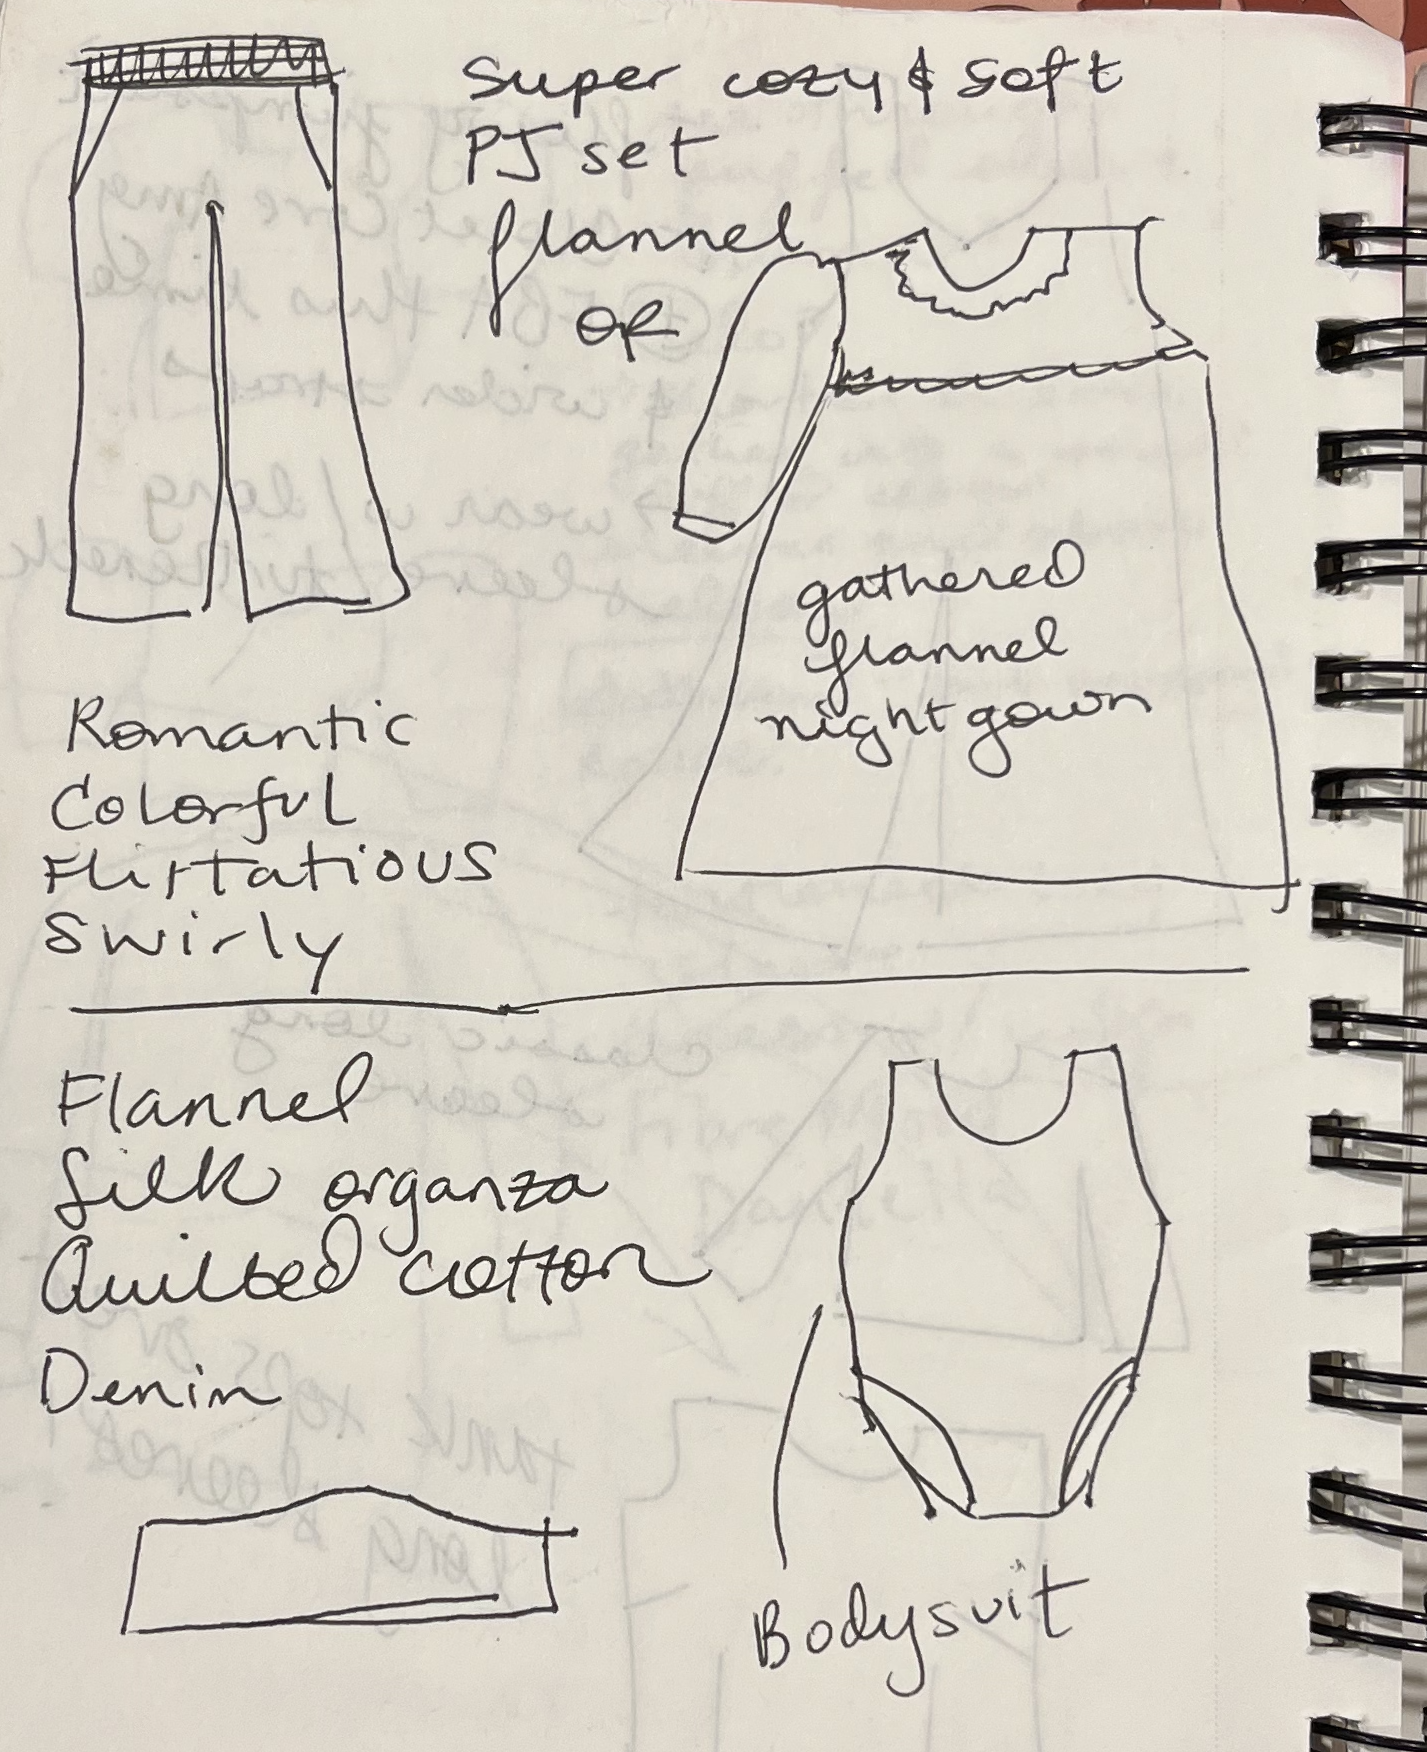 Super cozy & soft
PJ set
flannel
OR
gathered
flannel
nightgown
Romantic
Colorful
Flirtatious
Swirly
Flannel
Silk organza
Quilted cotton
Denim
Bodysuit